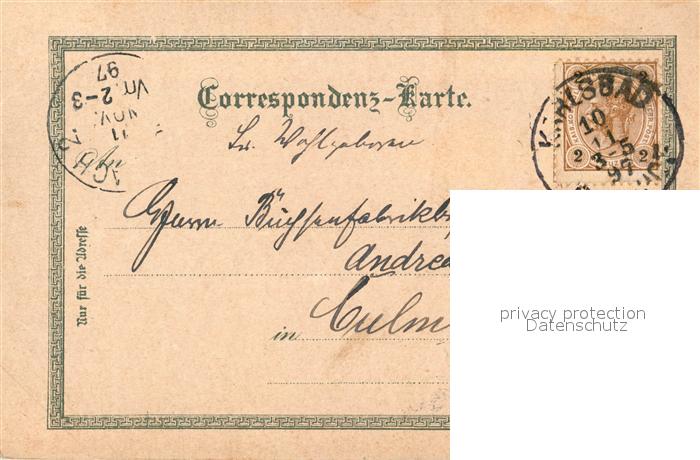 Correspondenz-Karte.
Sr. Wohlgeboren
Herrn Büchsenfabriks
Andrea
in Culm
Nur für die Adresse
KARLSBAD
10
11
3-5
97
2 2
11
NOV.
2-3
97
privacy protection
Datenschutz